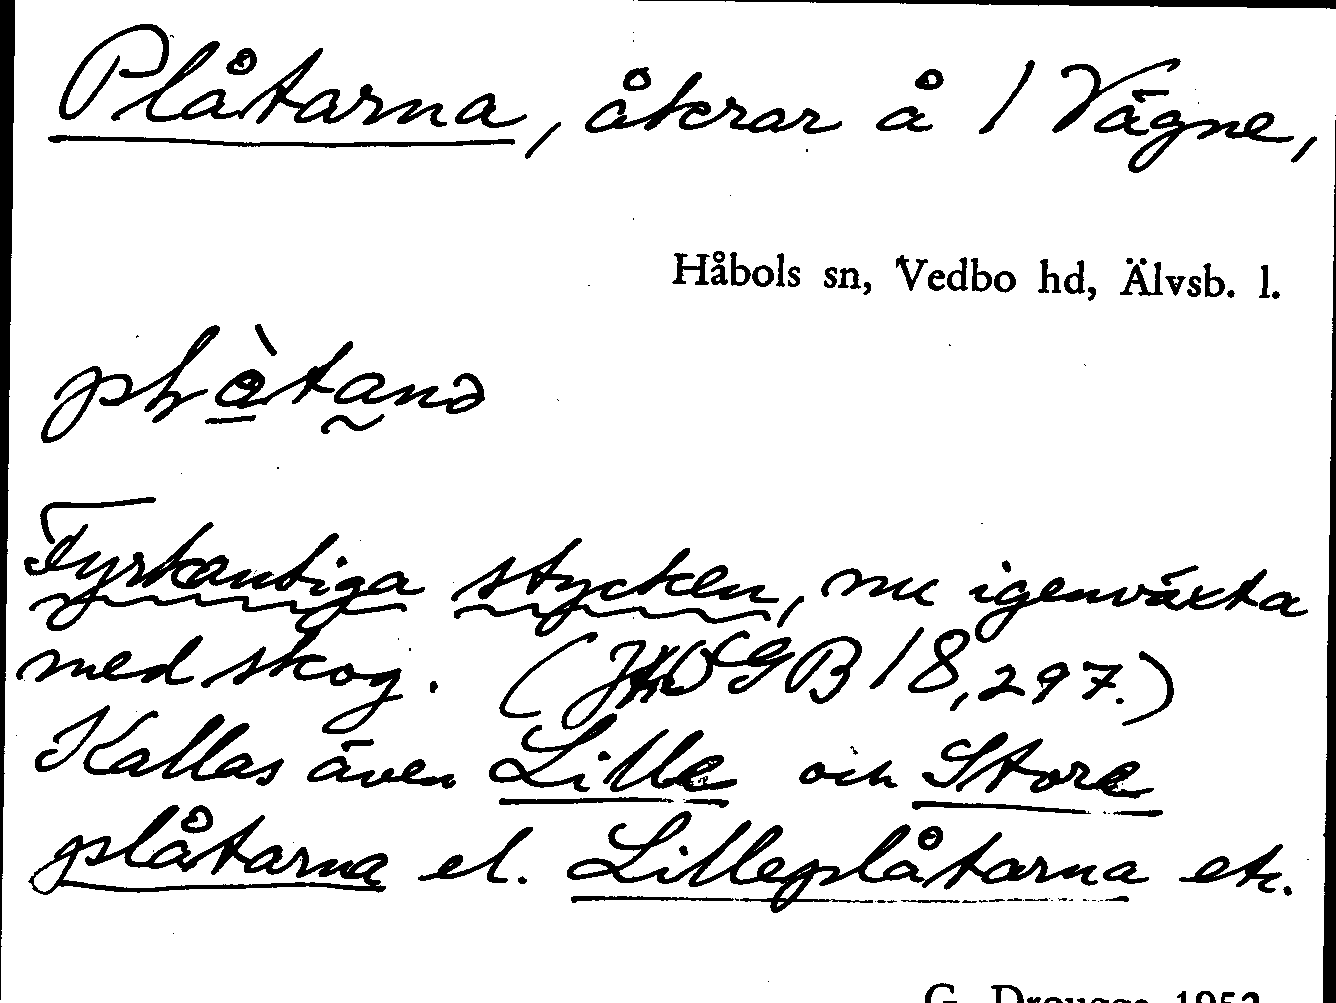 Plåtarna, åkrar å 1 Vägne,
Håbols sn, Vedbo hd, Älvsb. l.
Fyrkantiga stycken, nu igenväxta
med skog. (OGB 18, 297.)
Kallas även Lille och Store
plåtarna el. Lilleplåtarna etc.
G. Drougge 1952